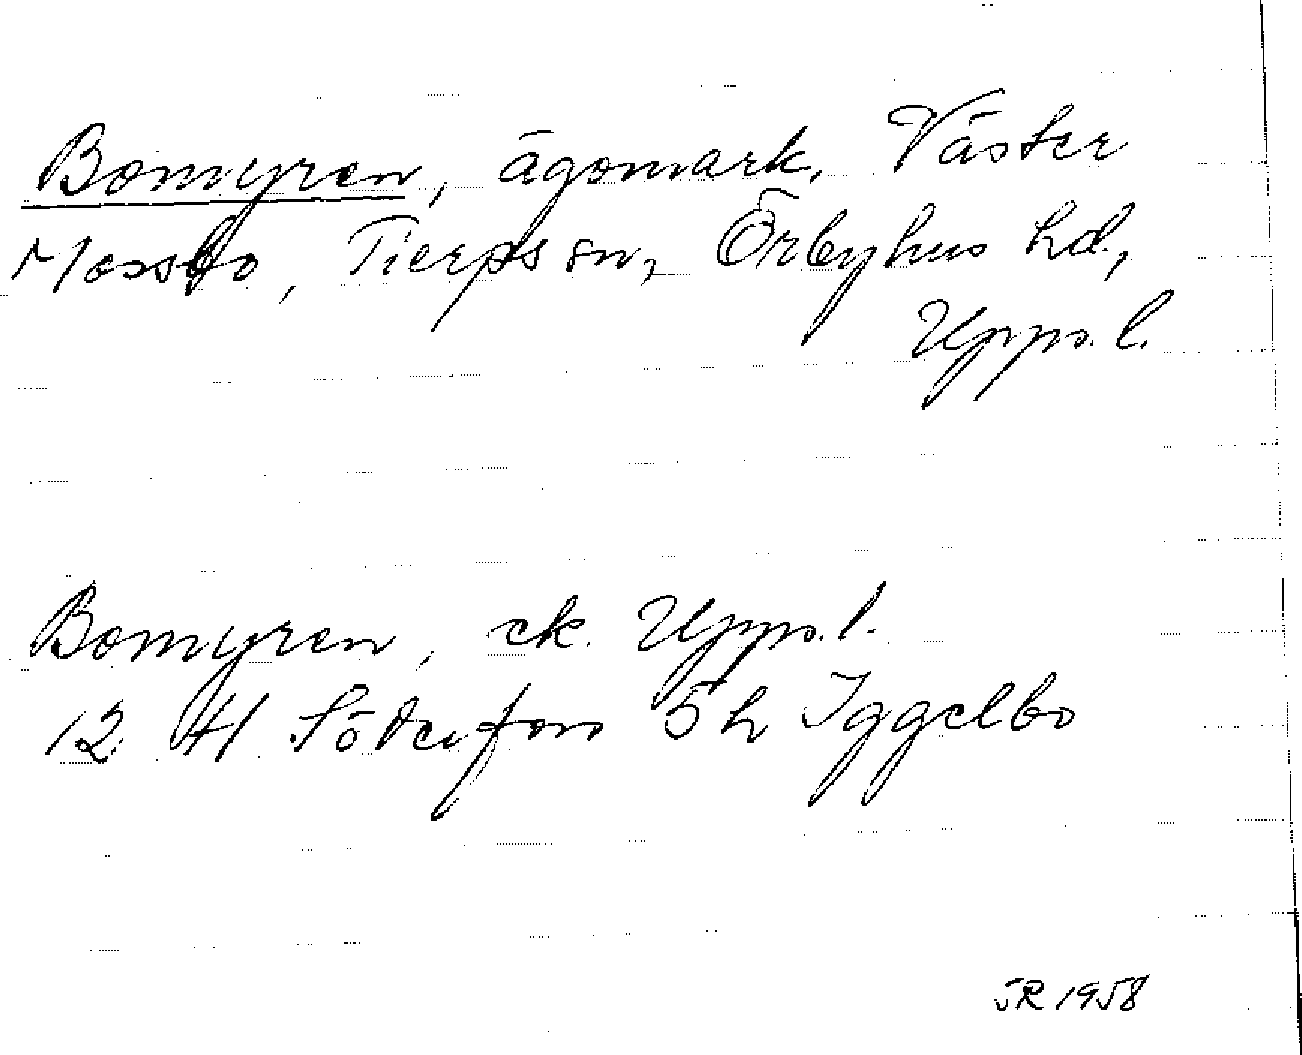 Bomyren, ägomark, Väster
Messbo, Tierps sn, Örbyhus hd.,
Upps. l.
Bomyren, ek. Upps. l.
12 H Söderfors 5 h Iggelbo
SR 1958